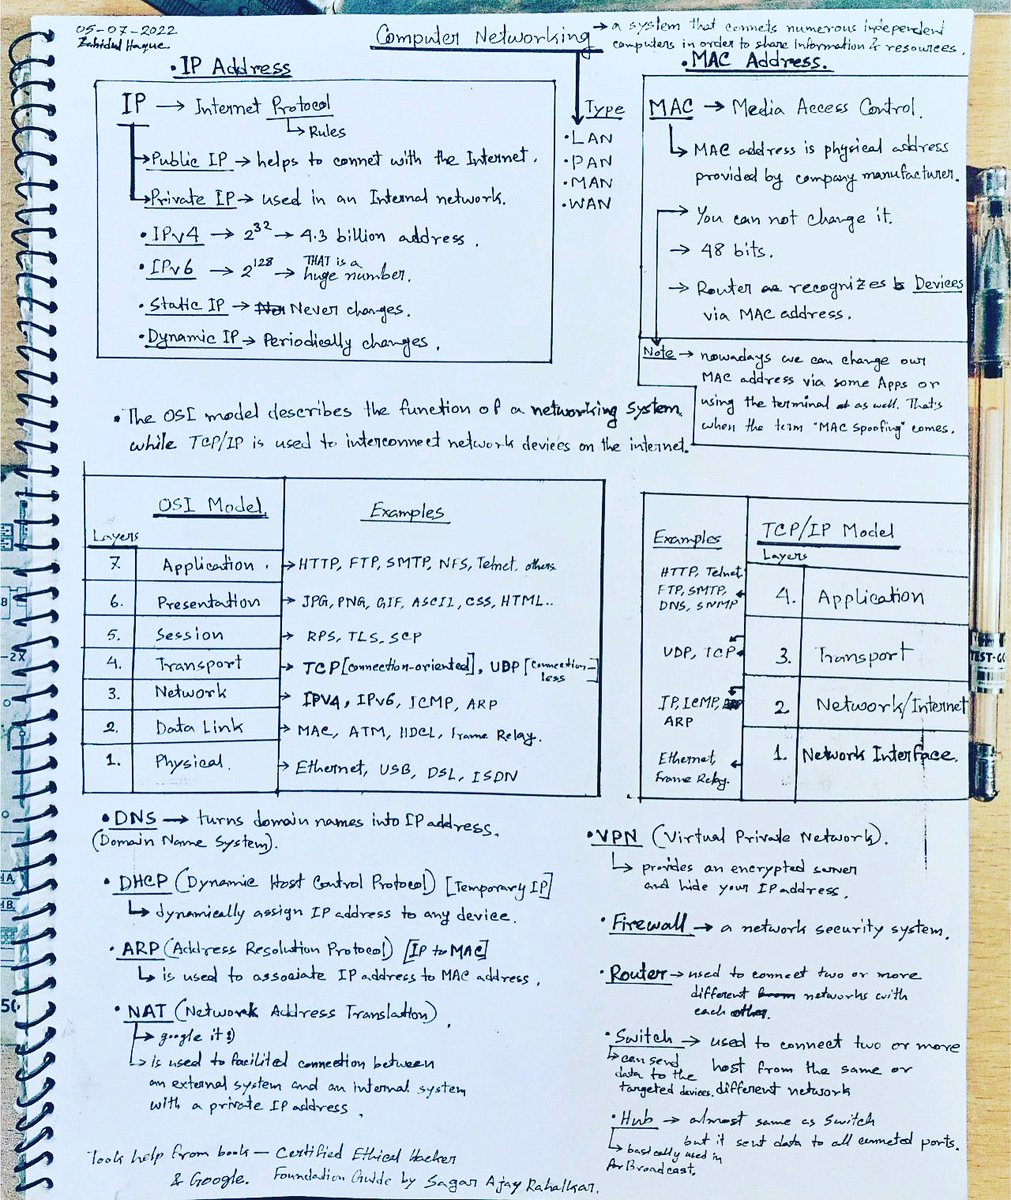 05-07-2022
Zahidul Haque
Computer Networking → a system that connets numerous independent
computers in order to share information & resources.
• IP Address
IP → Internet Protocol
↳ Rules
→ Public IP → helps to connet with the Internet.
→ Private IP → used in an Internal network.
• IPv4 → 2³² → 4.3 billion address.
• IPv6 → 2¹²⁸ → THAT is a
huge number.
• Static IP → Never changes.
• Dynamic IP → Periodically changes.
Type
• LAN
• PAN
• MAN
• WAN
• MAC Address.
MAC → Media Access Control.
↳ MAC address is physical address
provided by company manufacturer.
→ You can not change it.
→ 48 bits.
→ Router recognizes Devices
via MAC address.
Note → nowadays we can change our
MAC address via some Apps or
using the terminal as well. That's
when the term "MAC spoofing" comes.
• The OSI model describes the function of a networking system,
while TCP/IP is used to interconnect network devices on the internet.
OSI Model
Examples
Layers
7. Application. → HTTP, FTP, SMTP, NFS, Telnet. others.
6. Presentation → JPG, PNG, GIF, ASCII, CSS, HTML..
5. Session → RPS, TLS, SCP
4. Transport → TCP [connection-oriented], UDP [connection-
less
3. Network → IPV4, IPv6, ICMP, ARP
2. Data Link → MAC, ATM, HDCL, Frame Relay.
1. Physical. → Ethernet, USB, DSL, ISDN
TCP/IP Model
Examples
Layers
HTTP, Telnet
FTP, SMTP,
DNS, SNMP
4. Application
UDP, TCP
3. Transport
IP, ICMP,
ARP
2. Network/Internet
Ethernet,
Frame Relay.
1. Network Interface.
• DNS → turns domain names into IP address.
(Domain Name System).
• DHCP (Dynamic Host Control Protocol) [Temporary IP]
↳ dynamically assign IP address to any device.
• ARP (Address Resolution Protocol) [IP to MAC]
↳ is used to associate IP address to MAC address.
• NAT (Network Address Translation).
→ google it :)
→ is used to facilited connection between
an external system and an internal system
with a private IP address.
• VPN (Virtual Private Network).
↳ provides an encrypted server
and hide your IP address.
• Firewall → a network security system.
• Router → used to connect two or more
different networks with
each other.
• Switch → used to connect two or more
host from the same or
different network
↳ can send
data to the
targeted devices.
• Hub → almost same as Switch
but it sent data to all conneted ports.
↳ basically used in
for Broadcast.
Took help from book — Certified Ethical Hacker
& Google. Foundation Guide by Sagar Ajay Rahalkar.
TEST-